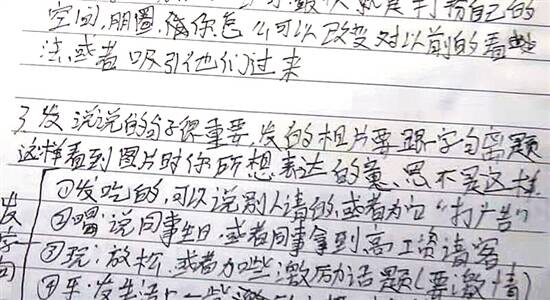 空间,朋圈,備你怎么可以改变对以前的看
法,或者吸引他们过来
3,发说说的句子很重要,发的相片要跟字句离题
这样看到图片时你所想表达的意思不是这样
①发吃的,可以说别人请的,或者为它“打广告”
②喝:说同事生日,或者同事拿到高工资请客
③玩:放松,或者加些激励话题(要激情)
④乐:发生活上一些
发字句